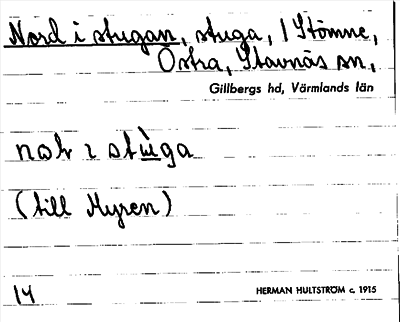 Nord i stugan, stuga, / Stömne,
Östra, Stavnäs sn,
Gillbergs hd, Värmlands län
(till Myren)
14
HERMAN HULTSTRÖM c. 1915